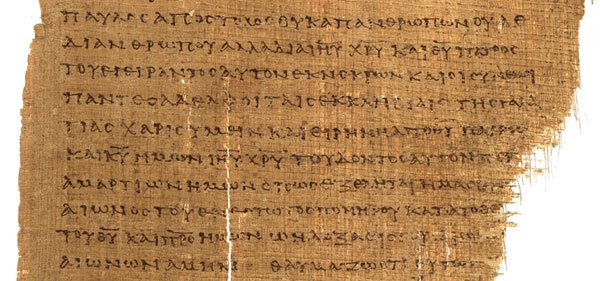 ΠΑΥΛΟϹ ΑΠΟϹΤΟΛΟϹ ΟΥΚ ΑΠ ΑΝΘΡΩΠΩΝ ΟΥΔΕ
ΔΙ ΑΝΘΡΩΠΟΥ ΑΛΛΑ ΔΙΑ ΙΗΥ ΧΡΥ ΚΑΙ ΘΥ ΠΑΤΡΟϹ
ΤΟΥ ΕΓΕΙΡΑΝΤΟϹ ΑΥΤΟΝ ΕΚ ΝΕΚΡΩΝ ΚΑΙ ΟΙ ϹΥΝ ΕΜΟΙ
ΠΑΝΤΕϹ ΑΔΕΛΦΟΙ ΤΑΙϹ ΕΚΚΛΗϹΙΑΙϹ ΤΗϹ ΓΑΛΑ
ΤΙΑϹ ΧΑΡΙϹ ΥΜΕΙΝ ΚΑΙ ΕΙΡΗΝΗ ΑΠΟ ΘΥ
ΚΑΙ ΚΥ ΗΜΩΝ ΙΗΥ ΧΡΥ ΤΟΥ ΔΟΝΤΟϹ ΑΥΤΟΝ
ΑΜΑΡΤΙΩΝ ΗΜΩΝ ΟΠΩϹ ΕΞΕΛΗΤΑΙ ΗΜΑϹ
ΑΙΩΝΟϹ ΤΟΥ ΕΝΕϹΤΩΤΟϹ ΠΟΝΗΡΟΥ ΚΑΤΑ ΤΟ
ΤΟΥ ΘΥ ΚΑΙ ΠΡϹ ΗΜΩΝ Ω Η ΔΟΞΑ ΕΙϹ
ΑΙΩΝΩΝ ΑΜΗΝ ΘΑΥΜΑΖΩ ΟΤΙ